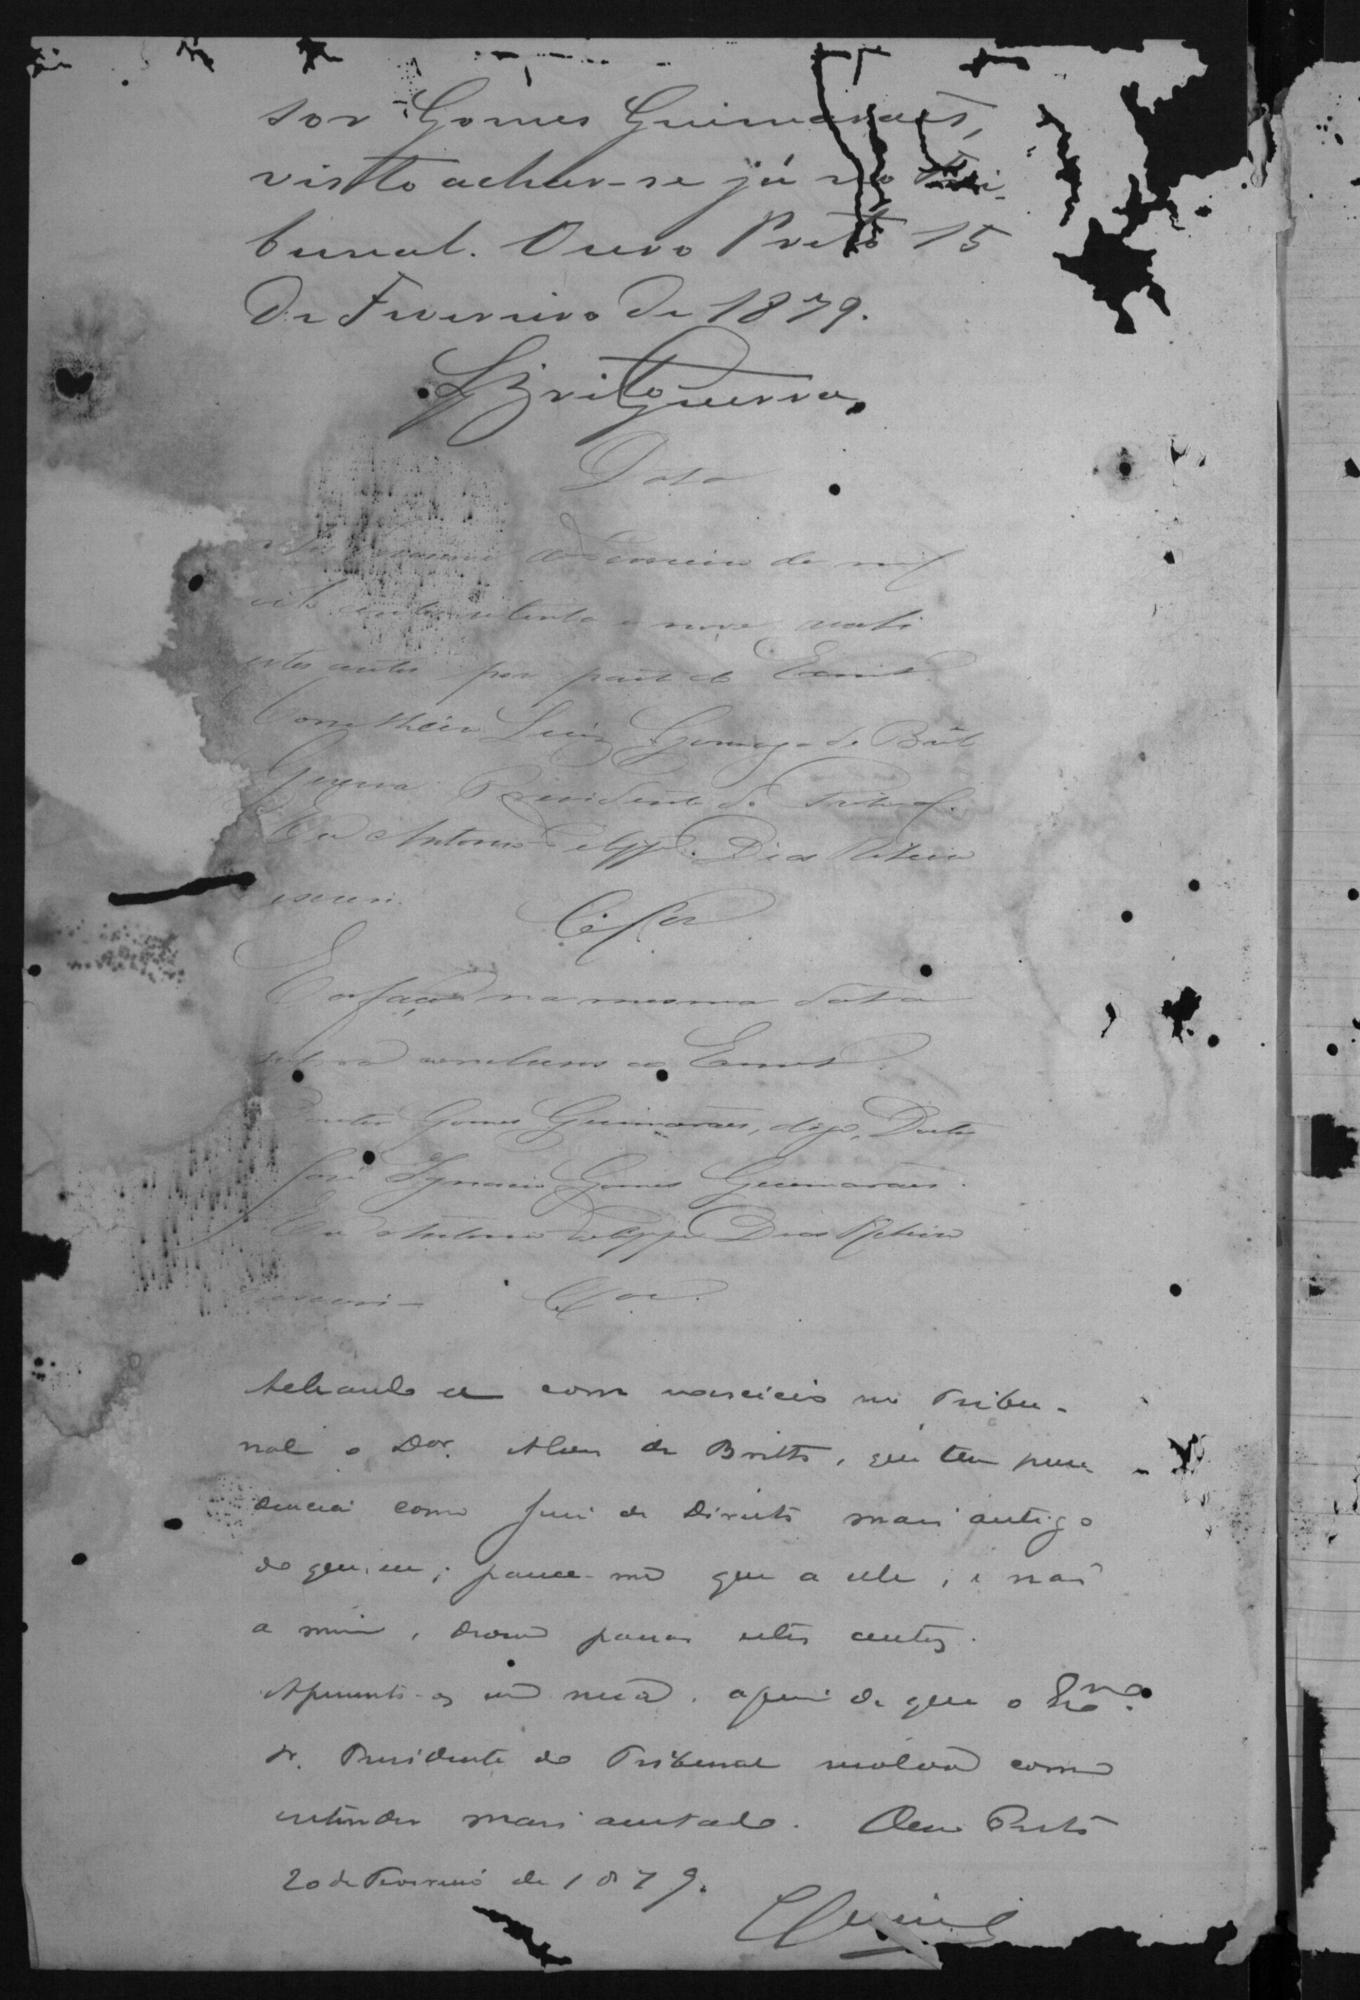 sor Gomes Guimarães,
visto achar-se já no Tri-
bunal. Ouro Preto 15
de Fevereiro de 1879.
LG Brito Guerra
Data
de mil
oito centos setenta e nove recebi
estes autos por parte do Exmo.
Conselheiro Luiz Gonzaga de Brito
Guerra Presidente do Tribunal.
Eu Antonio Felippe Dias Ribeiro
escrevi.
E os faço na mesma data
conclusos ao Exmo.
Doutor Gomes Guimarães, digo, Doutor
José Ignacio Gomes Guimarães.
Eu Antonio Felippe Dias Ribeiro
escrevi -
Achando se com exercicio no Tribu-
nal o Dor. Alves de Britto, que tem prece
dencia como Juiz de Direito mais antigo
do que eu; parece-me que a elle, e não
a mim, devem passar estes autos.
Apresento-os em mesa, afim de que o Exmo.
Sr. Presidente do Tribunal resolva como
entender mais acertado. Ouro Preto
20 de Fevereiro de 1879.